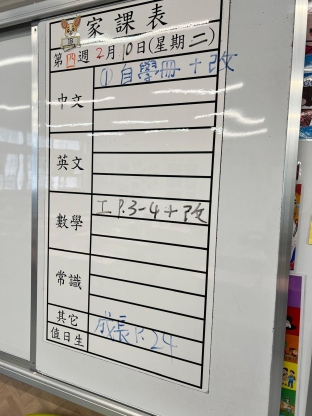 家課表
第四週 2月10日(星期二)
中文 ① 自學冊 + 改
英文
數學 工 P.3-4 + 改
常識
其它 成長 P.24
值日生